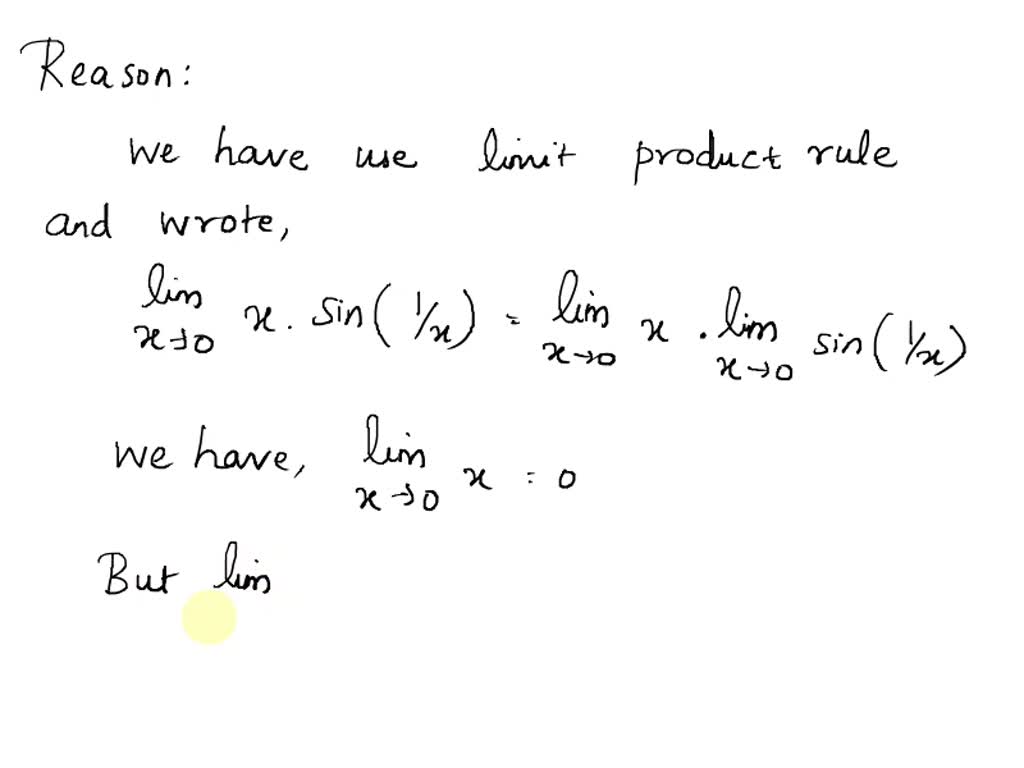 Reason:
we have use limit product rule
and wrote,
lim x→0 x . sin(1/x) = lim x→0 x . lim x→0 sin(1/x)
we have, lim x→0 x = 0
But lim